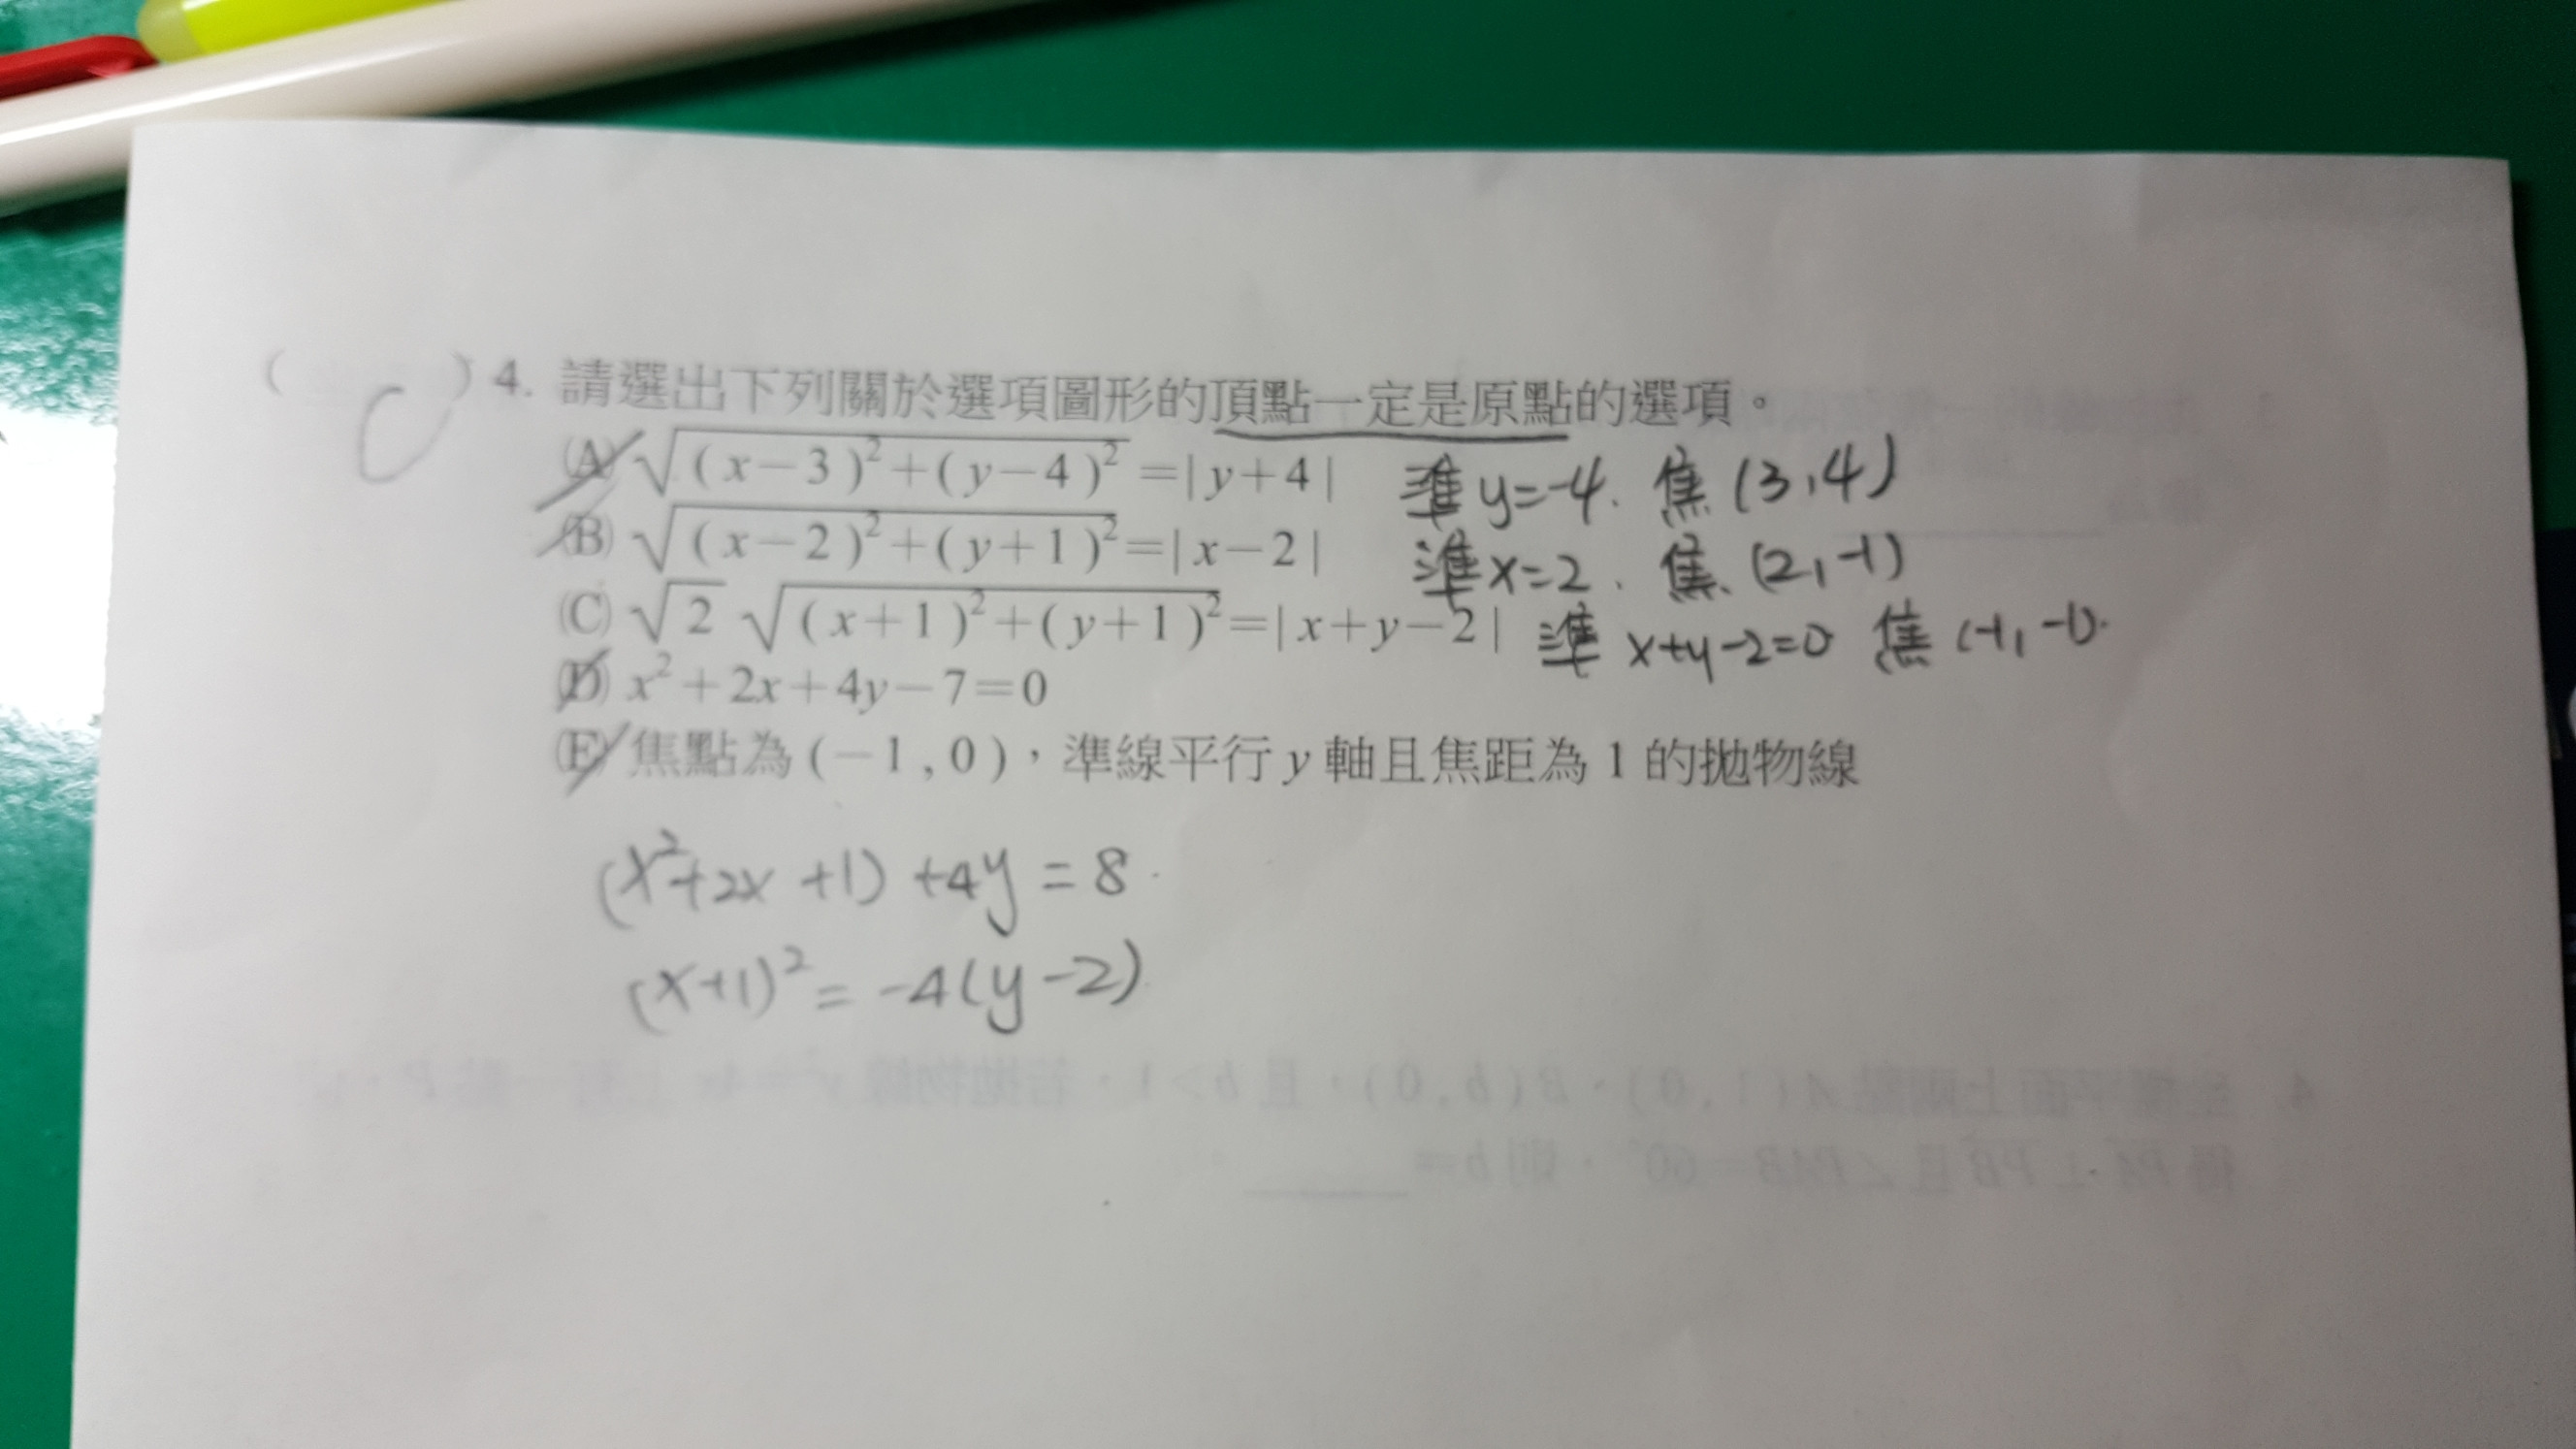 ( C ) 4. 請選出下列關於選項圖形的頂點一定是原點的選項。
(A) √(x-3)²+(y-4)² =|y+4| 準 y=-4. 焦 (3,4)
(B) √(x-2)²+(y+1)²=|x-2| 準 x=2. 焦. (2,-1)
(C) √2 √(x+1)²+(y+1)²=|x+y-2| 準 x+y-2=0 焦 (-1,-1).
(D) x²+2x+4y-7=0
(E) 焦點為(-1,0),準線平行 y 軸且焦距為 1 的拋物線
(x²+2x+1)+4y=8.
(x+1)²=-4(y-2)